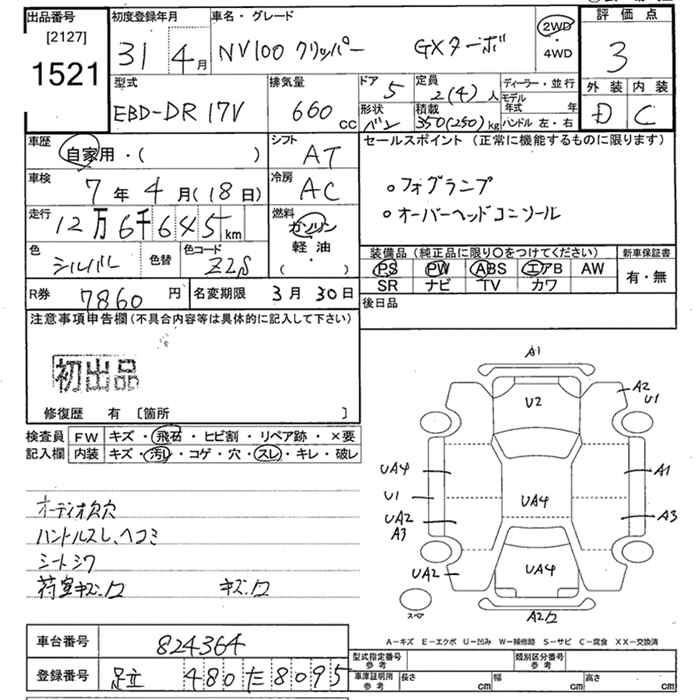 出品番号 初度登録年月 車名・グレード 2WD 評価点
[2127] 31 4月 NV100 クリッパー GXターボ ・4WD 3
1521
型式 排気量 ドア 5 定員 2(4)人 ディーラー・並行 外装 内装
EBD-DR17V 660cc 形状 バン 積載 350(250)kg モデル年式 年 D C
ハンドル 左・右
車歴 自家用・( ) シフト AT セールスポイント(正常に機能するものに限ります)
車検 7年4月(18日) 冷房 AC 。フォグランプ
走行 12万6千645km 燃料 ガソリン 。オーバーヘッドコンソール
軽油
( ・ )
色 シルバー 色替 色コード Z2S 装備品(純正品に限り〇をつけてください) 新車保証書
PS PW ABS エアB AW 有・無
SR ナビ TV カワ
R券 7860円 名変期限 3月30日 後日品
注意事項申告欄(不具合内容等は具体的に記入して下さい)
初出品
修復歴 有 [箇所 ]
検査員 FW キズ・飛石・ヒビ割・リペア跡・×要
記入欄 内装 キズ・汚レ・コゲ・穴・スレ・キレ・破レ
オーディオ欠穴
ハンドルスレ、ヘコミ
シートシワ
荷室キズ、ワ キズ、ワ
A1
U2
A2 U1
UA4 A1
U1 UA4
UA2 A3 A3
UA2 UA4
スペア A2ワ
A-キズ E-エクボ U-凹み W-補修跡 S-サビ C-腐食 XX-交換済
車台番号 824364 型式指定番号 参考 類別区分番号 参考
登録番号 足立 480 た 8095 車庫証明所 参考 長さ cm 幅 cm 高さ cm